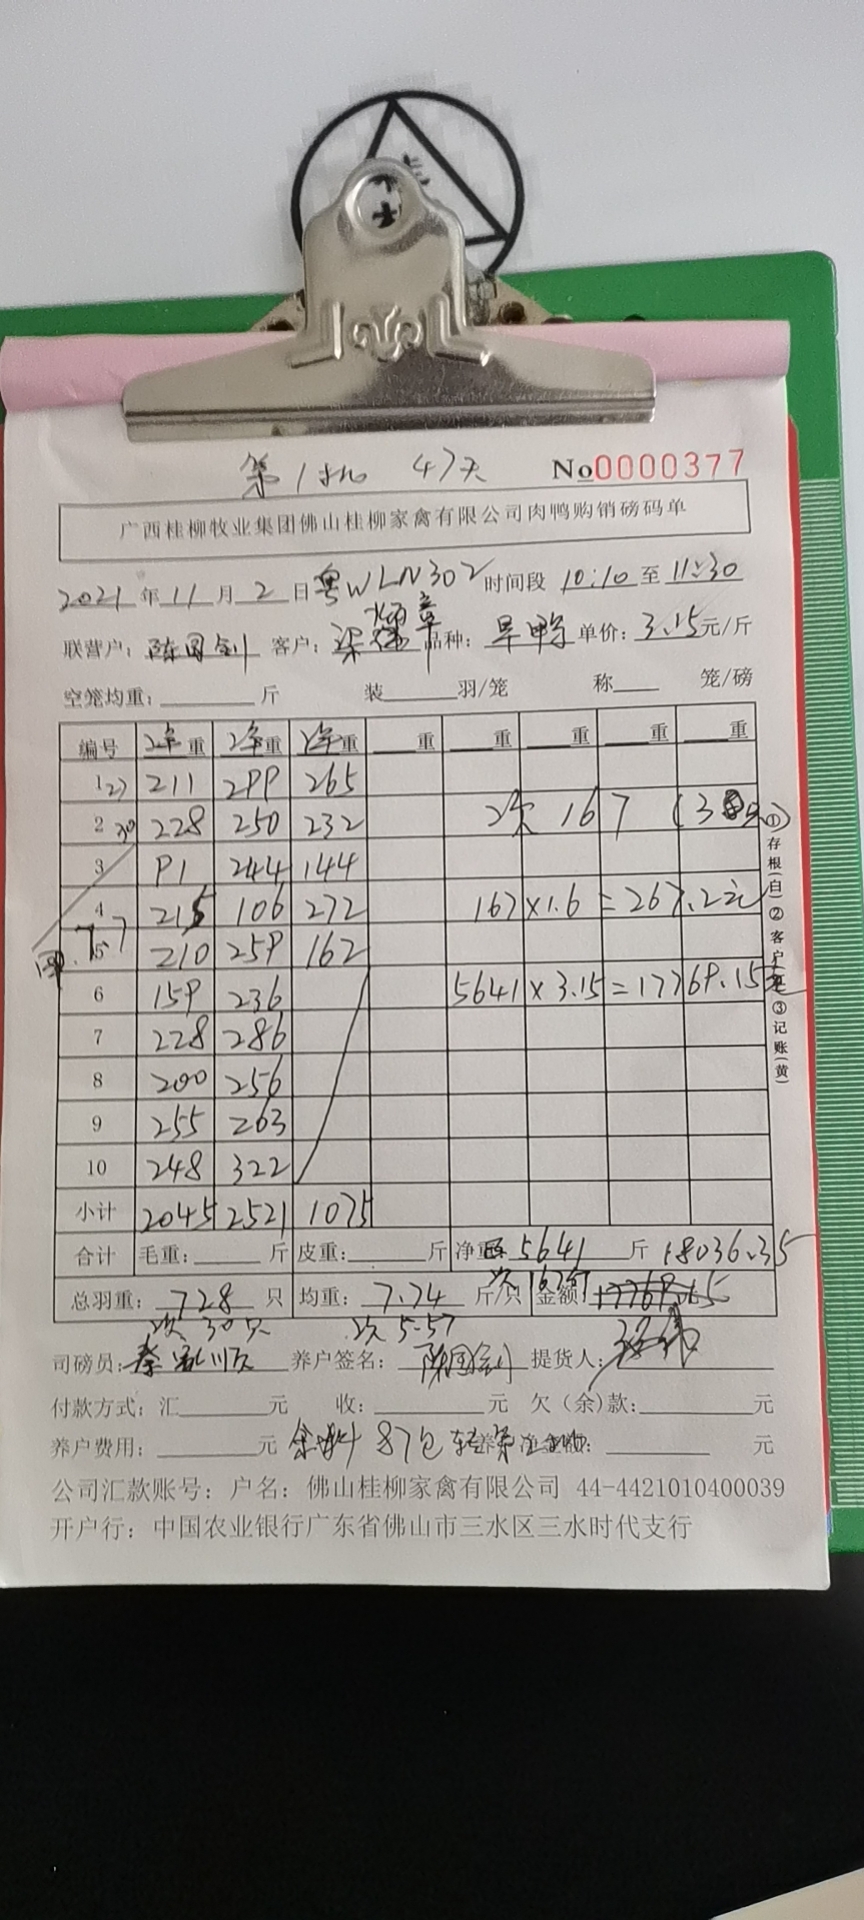 第1批 47天 No0000377
广西桂柳牧业集团佛山桂柳家禽有限公司肉鸭购销磅码单
2021年11月2日 粤WLN302 时间段 10:10 至 11:30
联营户: 陈国剑 客户: 梁 章 品种: 旱鸭 单价: 3.15元/斤
空笼均重: 斤 装 羽/笼 称 笼/磅
编号 净重 净重 净重 重 重 重 重 重
1 211 299 265
2 228 250 232 次 167 (30只)
3 91 244 144
4 215 106 272 167×1.6=267.2元
5 210 259 162
6 159 236 5641×3.15=17769.15元
7 228 286
8 200 256
9 255 263
10 248 322
小计 2045 2521 1075
合计 毛重: 斤 皮重: 斤 净重: 5641 斤 18036.35
次167斤
总羽重: 728 只 均重: 7.74 斤/只 金额: 17769.15
次 30只 次 5.57
司磅员: 养户签名: 陈国剑 提货人:
付款方式: 汇 元 收: 元 欠(余)款: 元
养户费用: 元 余料 87包 元
公司汇款账号: 户名: 佛山桂柳家禽有限公司 44-4421010400039
开户行: 中国农业银行广东省佛山市三水区三水时代支行
7.7
①存根(白)②客户 ③记账(黄)